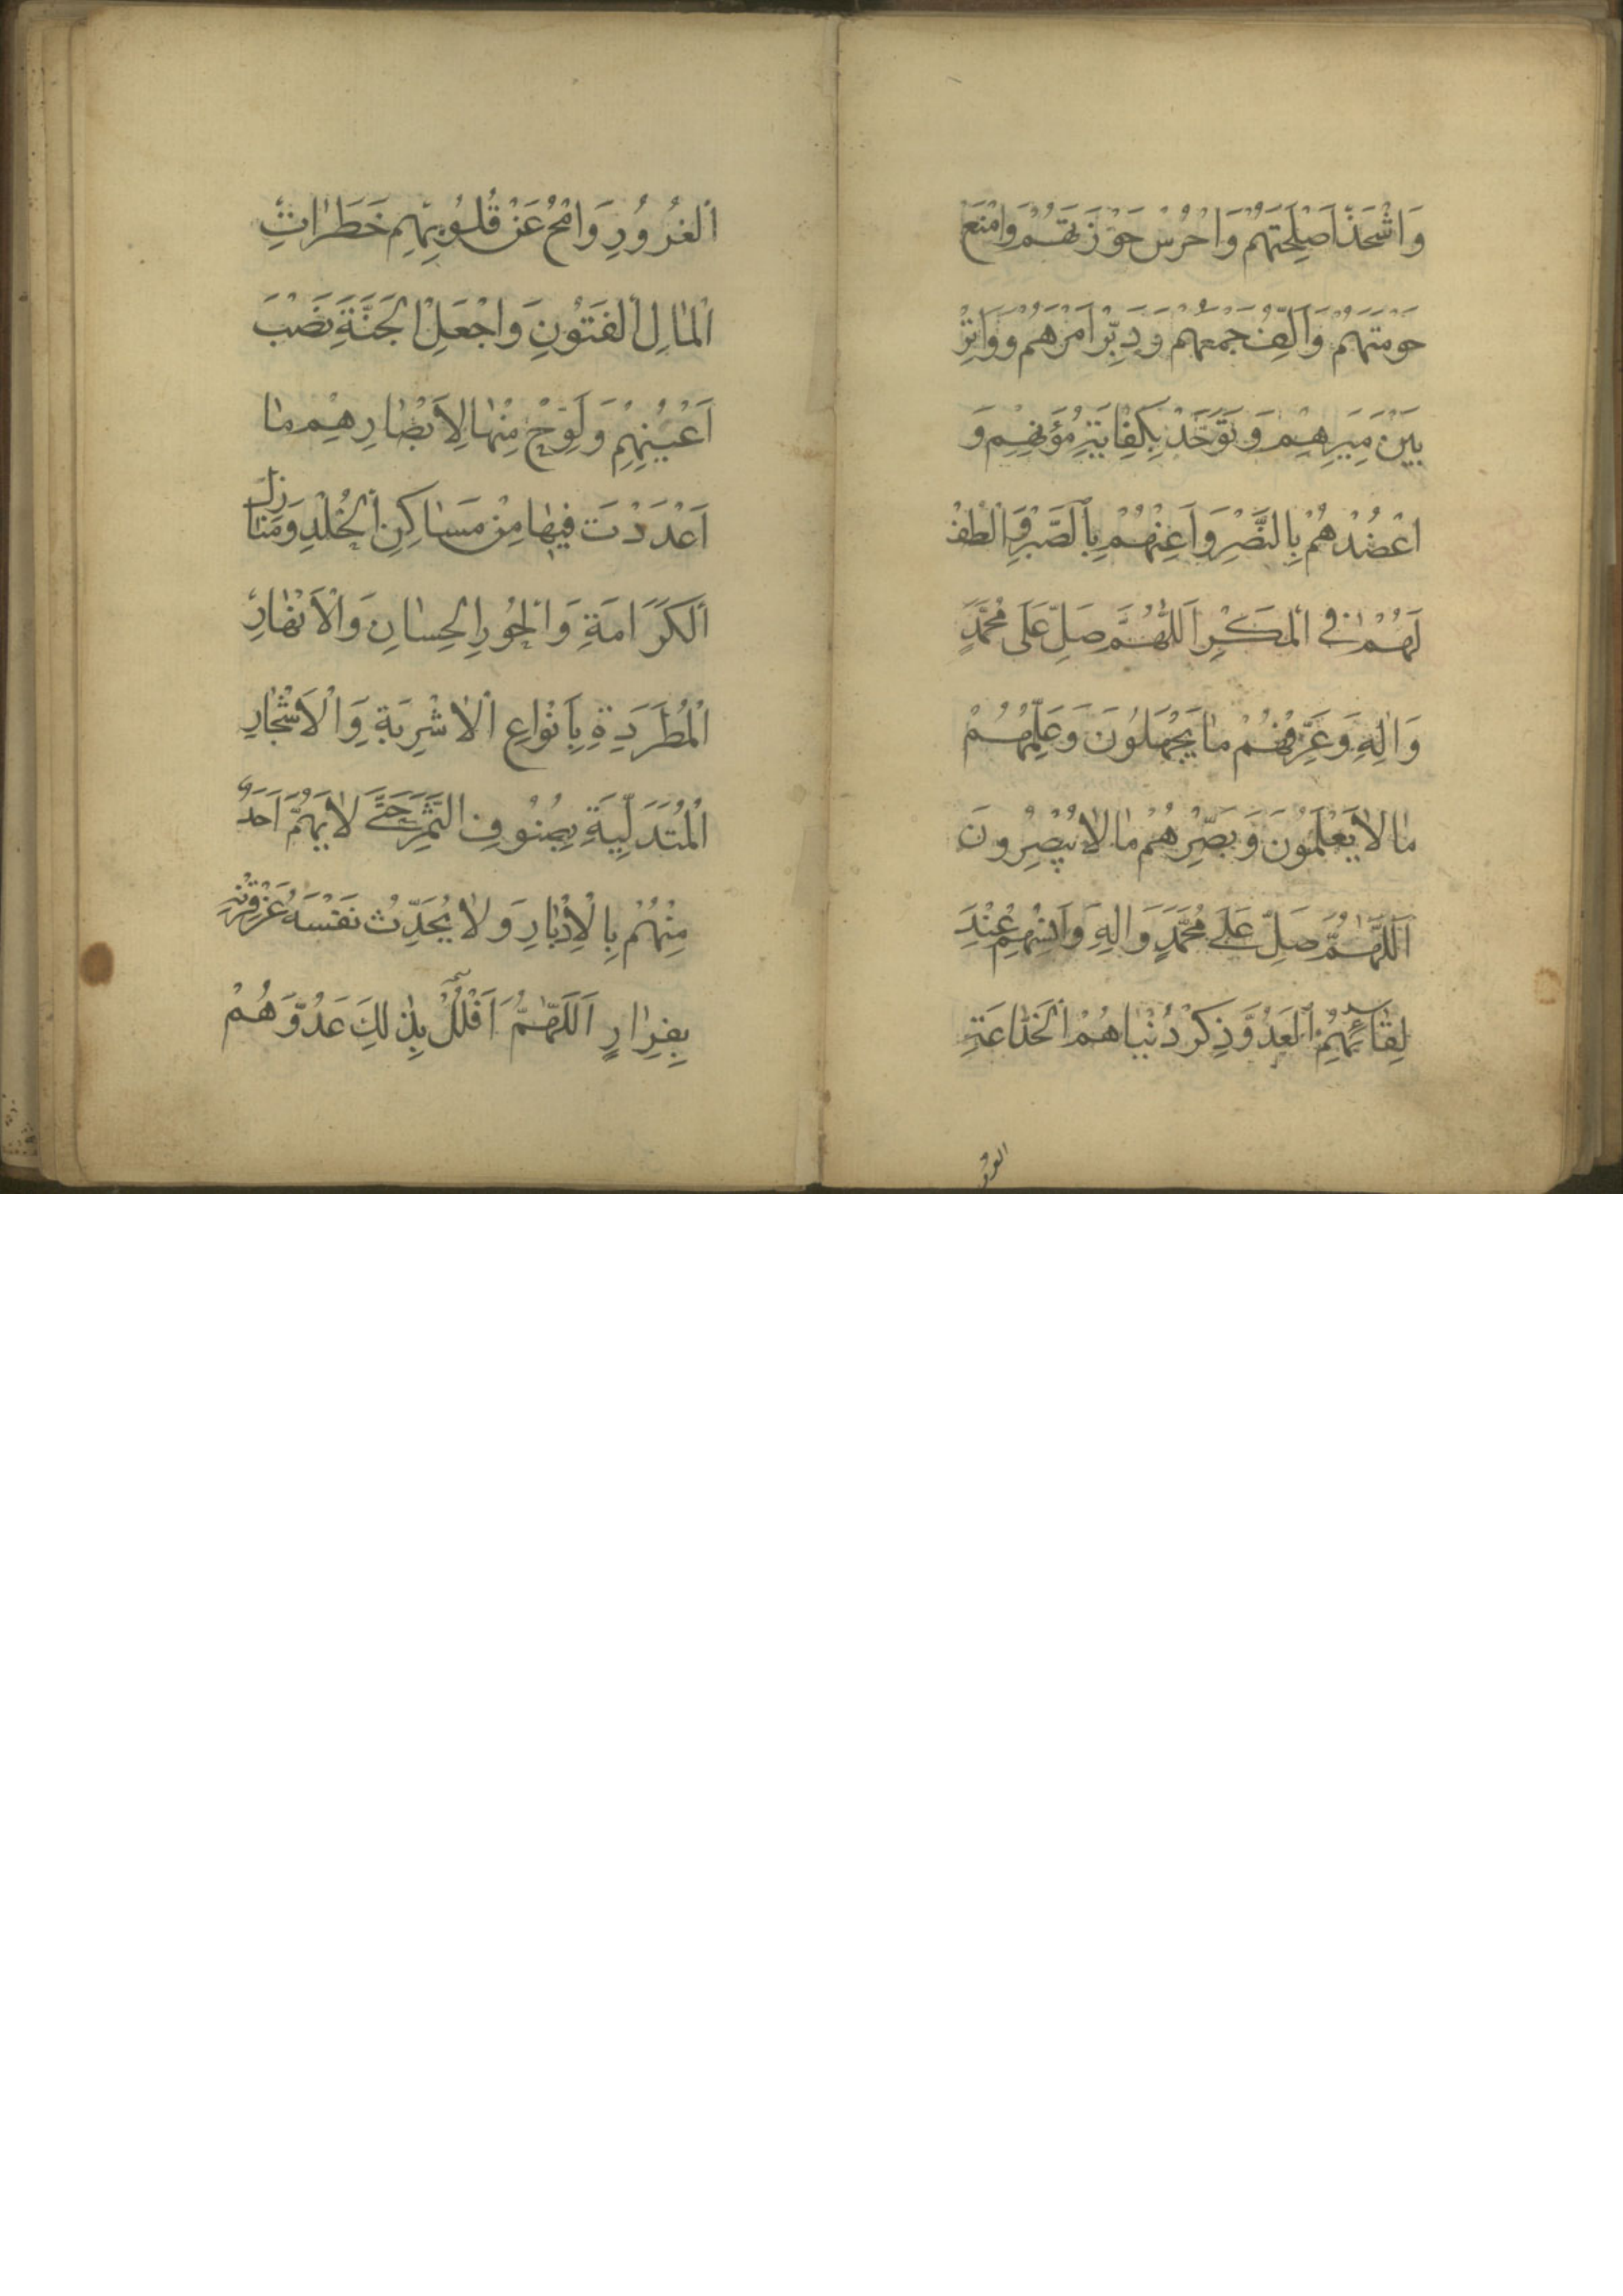 وَاشْحَذْ اَصْلِحَتَهُمْ وَاحْرُسْ حَوْزَتَهُمْ وَامْنَعْ
حَوْمَتَهُمْ وَاَلِّفْ جَمْعَهُمْ وَدَبِّرْ اَمْرَهُمْ وَوَاتِرْ
بَيْنَ مِيَرِهِمْ وَتَوَحَّدْ بِكَفِايَةِ مُؤَنِهِمْ وَ
اعْضُدْهُمْ بِالنَّصْرِ وَاَعِنْهُمْ بِالصَّبْرِ وَالْطُفْ
لَهُمْ فِي الْمَكْرِ اَللّٰهُمَّ صَلِّ عَلَى مُحَمَّدٍ
وَاٰلِهِ وَعَرِّفْهُمْ مٰا يَجْهَلُونَ وَعَلِّمْهُمْ
مٰا لاٰ يَعْلَمُونَ وَبَصِّرْهُمْ مٰا لاٰ يُبْصِرُونَ
اَللّٰهُمَّ صَلِّ عَلَى مُحَمَّدٍ وَاٰلِهِ وَاَنْسِهِمْ عِنْدَ
لِقٰائِهِمُ الْعَدُوَّ ذِكْرَ دُنْيٰاهُمُ الْخَدّٰاعَةِ
الغرور
الْغَرُورِ وَامْحُ عَنْ قُلُوبِهِمْ خَطَرٰاتِ
الْمٰالِ الْفَتُونِ وَاجْعَلِ الْجَنَّةَ نَصْبَ
اَعْيُنِهِمْ وَلَوِّحْ مِنْهٰا لِاَبْصٰارِهِمْ مٰا
اَعْدَدْتَ فِيهٰا مِنْ مَسٰاكِنِ الْخُلْدِ وَمَنٰازِلِ
الْكَرَامَةِ وَالْحُورِ الْحِسٰانِ وَالْاَنْهٰارِ
الْمُطَّرِدَةِ بِاَنْوٰاعِ الْاَشْرِبَةِ وَالْاَشْجٰارِ
الْمُتَدَلِّيَةِ بِصُنُوفِ الثَّمَرِ حَتَّى لاٰ يَهُمَّ اَحَدٌ
مِنْهُمْ بِالْاِدْبٰارِ وَلاٰ يُحَدِّثَ نَفْسَهُ عَنْ قِرْنِهِ
بِفِرٰارٍ اَللّٰهُمَّ افْلُلْ بِذٰلِكَ عَدُوَّهُمْ